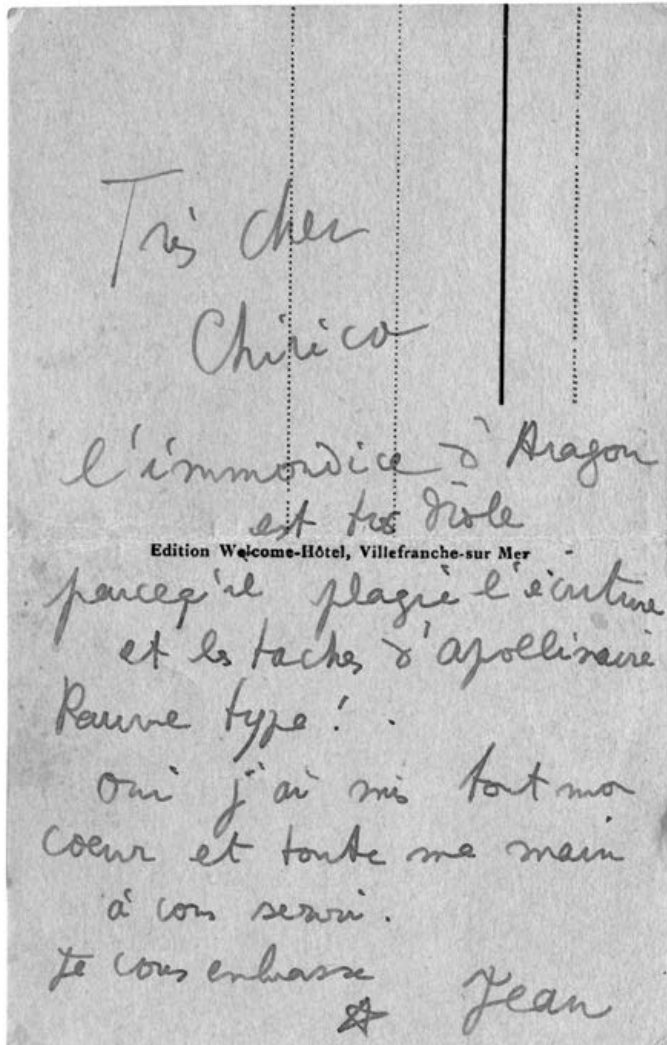 Très cher
Chirico
l'immondice d'Aragon
est très drôle
Edition Welcome-Hôtel, Villefranche-sur Mer
parcequ'il plagie l'écriture
et les taches d'apollinaire
Pauvre type !
oui j'ai mis tout mon
coeur et toute ma main
à vous servir.
Je vous embrasse
Jean